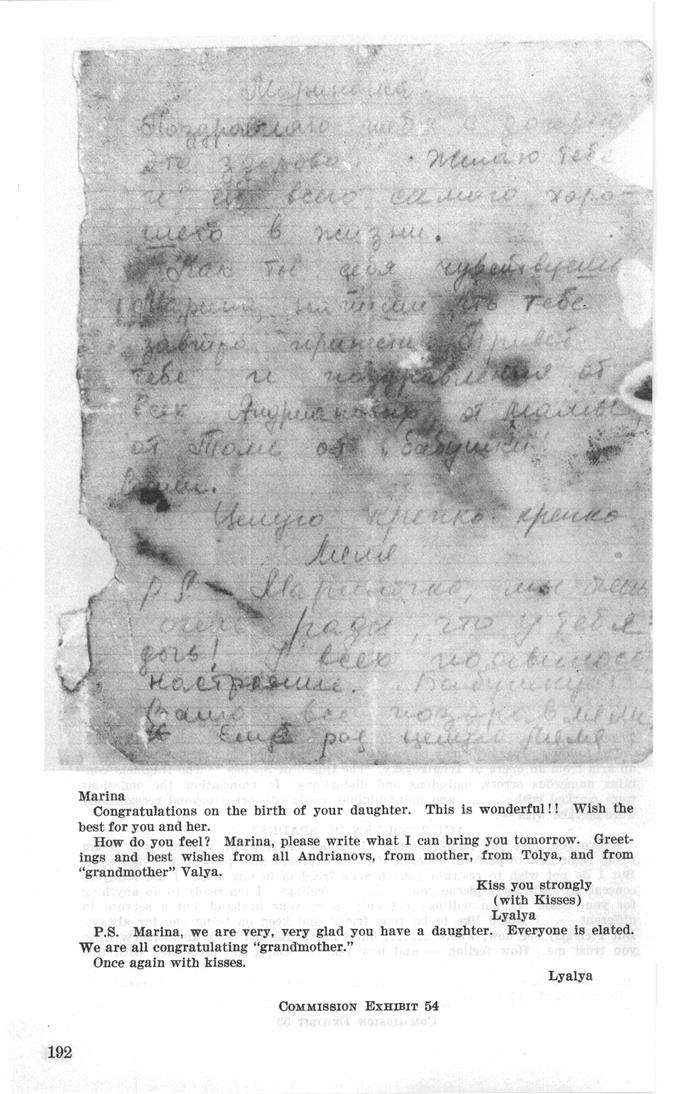 Мариночка!
Поздравляю тебя с дочерью
Это здорово!! Желаю тебе
и ей всего самого хоро-
шего в жизни.
Как ты себя чувствуешь
Марина, напиши что тебе
завтра принести. Привет
тебе и поздравления от
всех Андриановых, от мамы,
от Толи от "бабушки"
Вали.
Целую крепко крепко
Ляля
P.S. Мариночка, мы очень
очень рады, что у тебя
дочь! У всех
настроение. Бабушку
Валю все поздравляли
Ещё раз целую Ляля
Marina
Congratulations on the birth of your daughter. This is wonderful!! Wish the
best for you and her.
How do you feel? Marina, please write what I can bring you tomorrow. Greet-
ings and best wishes from all Andrianovs, from mother, from Tolya, and from
"grandmother" Valya.
Kiss you strongly
(with Kisses)
Lyalya
P.S. Marina, we are very, very glad you have a daughter. Everyone is elated.
We are all congratulating "grandmother."
Once again with kisses.
Lyalya
COMMISSION EXHIBIT 54
192